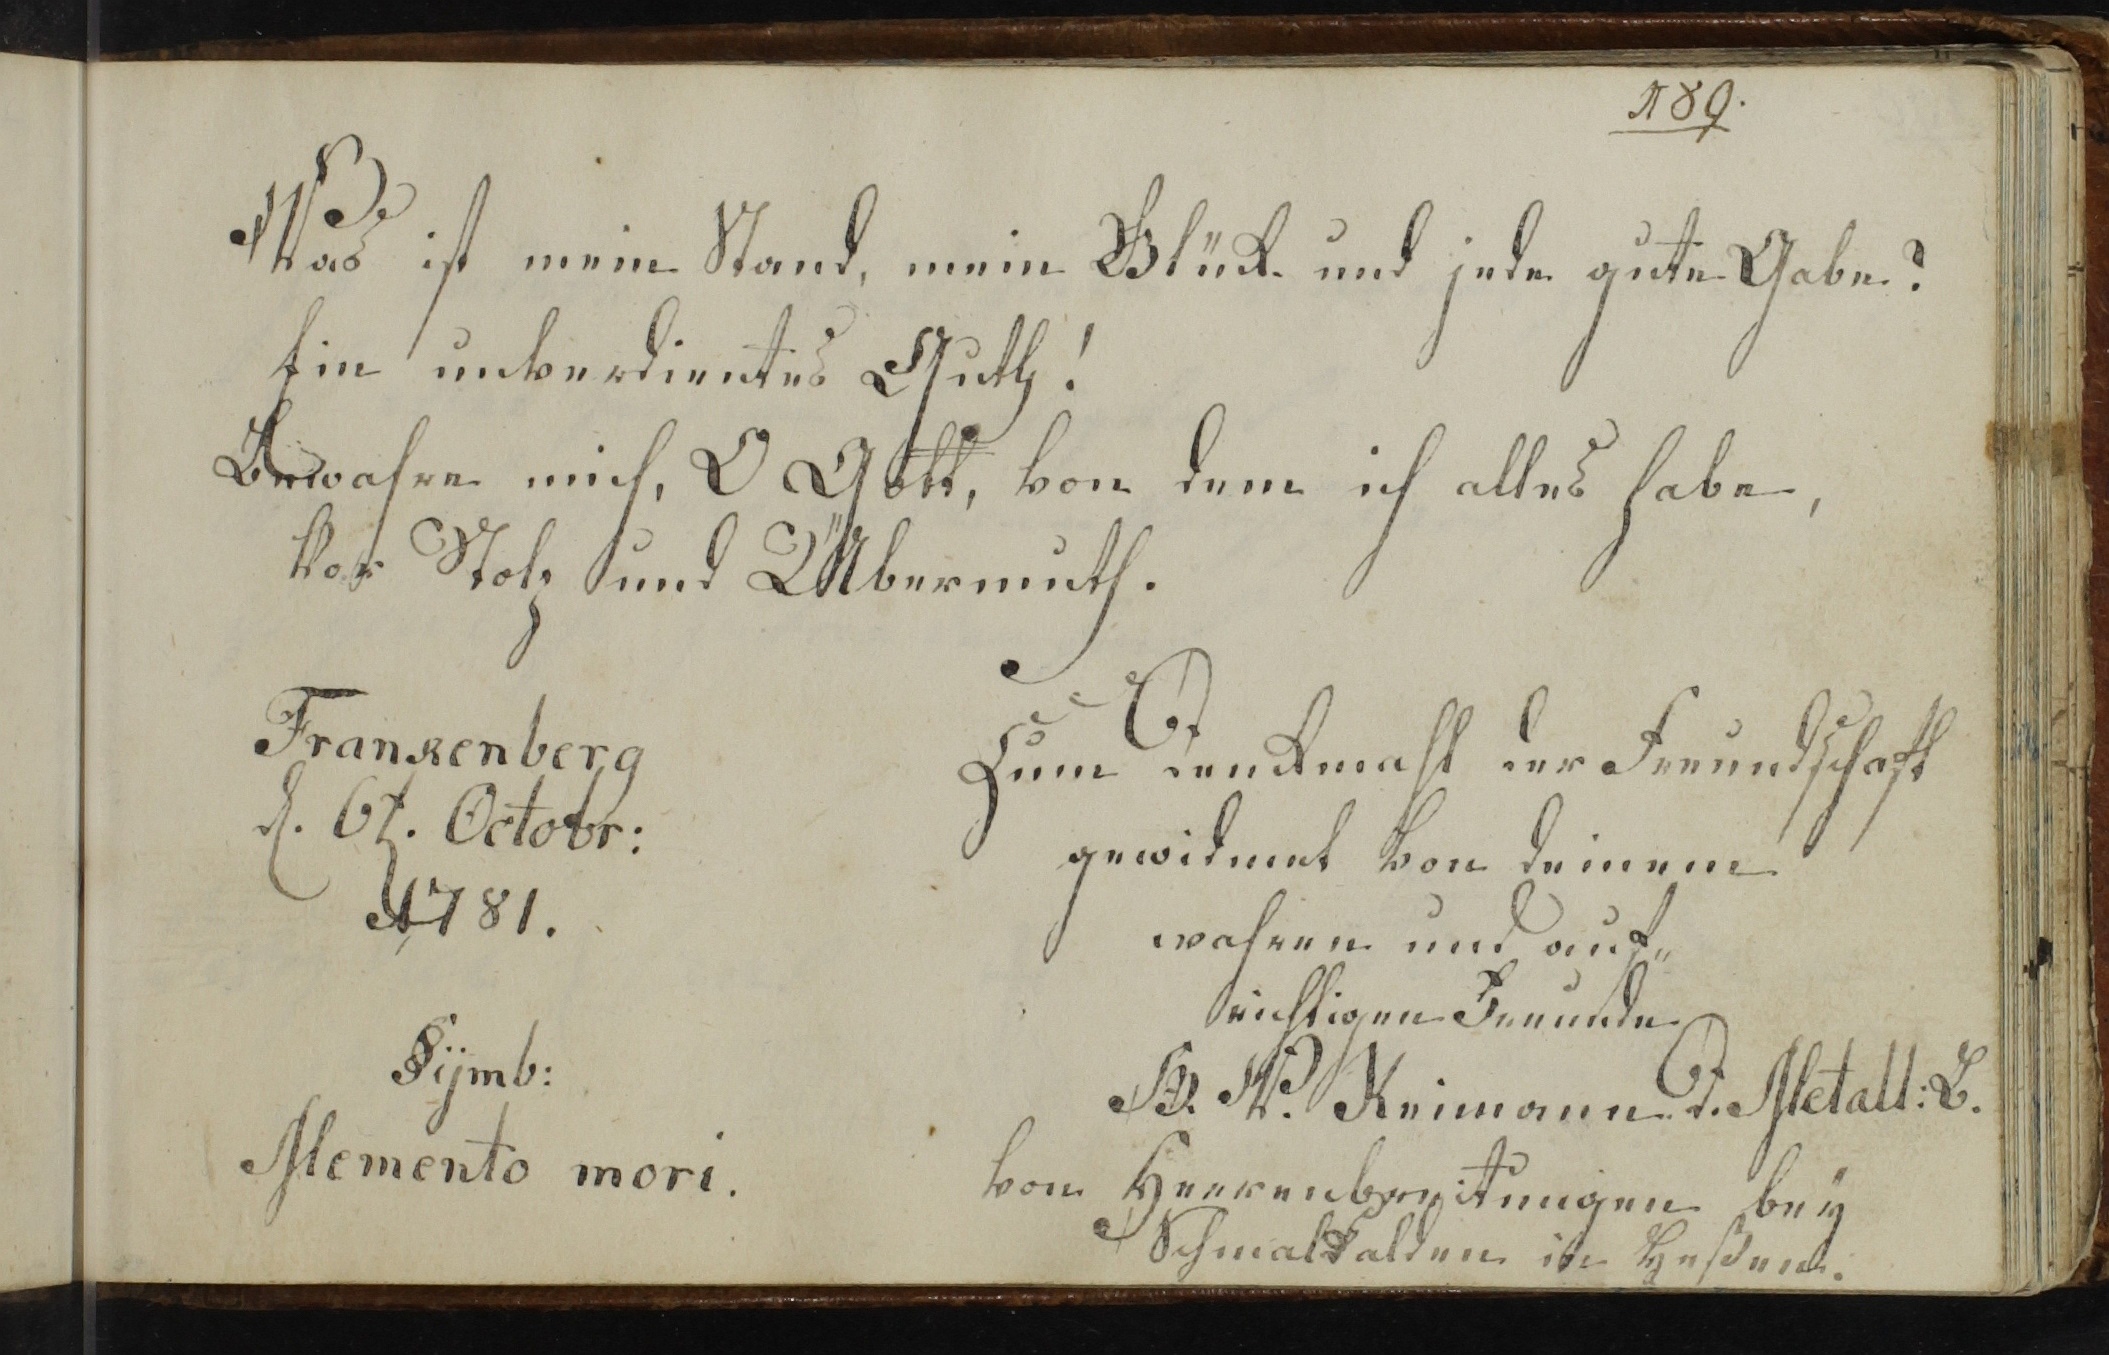 189.
Was ist mein Stand, mein Glück und jede gute Gabe?
Ein unverdientes Guth!
Bewahre mich, O Gott, von dem ich alles habe,
Vor Stolz und Übermuth.
Frankenberg
d. 6t. Octobr:
1781.
Sÿmb:
Memento mori.
Zum Denckmahl der Freundschaft
gewidmet von deinem
wahren und auf-
richtigen Freunde
W. Reimann d. Metall: B.
von Herrenbreitungen beÿ
Schmalkalden in Heßen.